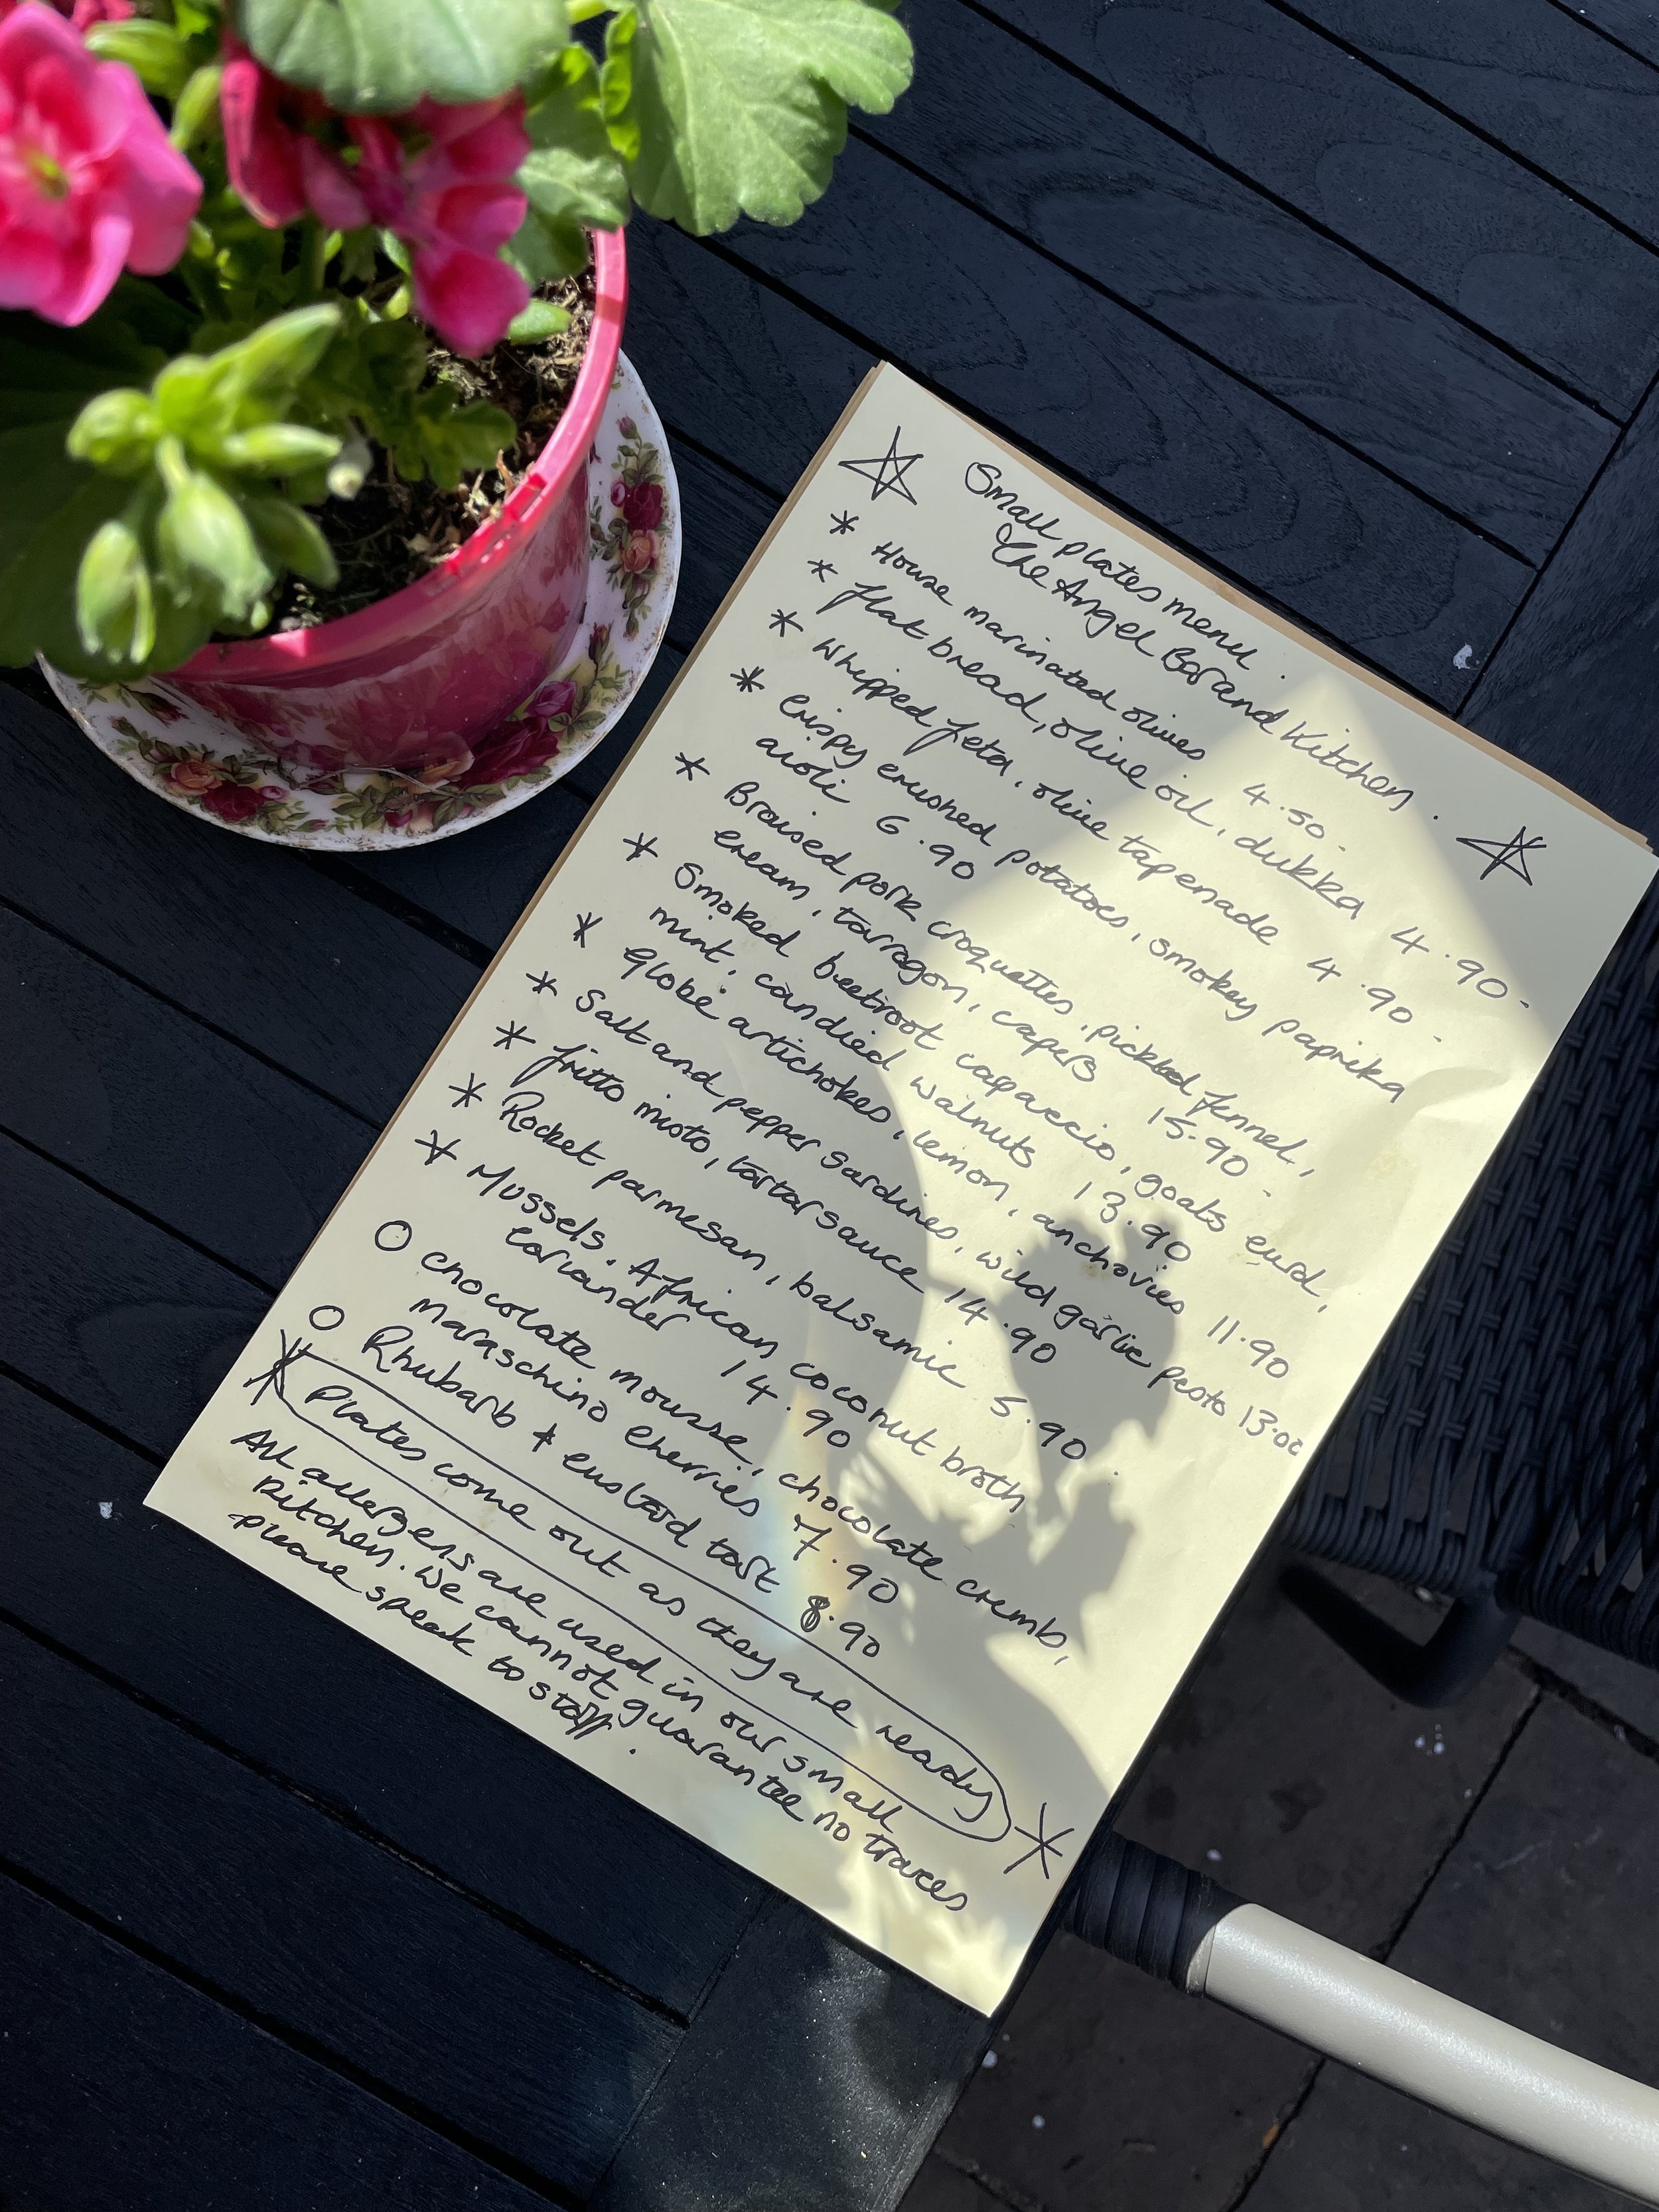 Small plates menu.
The Angel Bar and Kitchen.
* House marinated olives 4.50-
* Flat bread, olive oil, dukka 4.90-
* Whipped feta, olive tapenade 4.90-
* Crispy crushed potatoes, smokey paprika
aioli 6.90
* Braised pork croquettes, pickled fennel,
cream, tarragon, capers 15.90-
* Smoked beetroot capaccio, goats curd,
mint, candied walnuts 13.90
* Globe artichokes, lemon, anchovies 11.90
* Salt and pepper sardines, wild garlic pesto 13.00
* Fritto misto, tartar sauce 14.90
* Rocket parmesan, balsamic 5.90.
* Mussels. African coconut broth
coriander 14.90
O Chocolate mousse, chocolate crumb,
maraschino cherries 7.90
O Rhubarb + custard tart 8.90
* Plates come out as they are ready *
All allergens are used in our small
kitchen. We cannot guarantee no traces
please speak to staff.